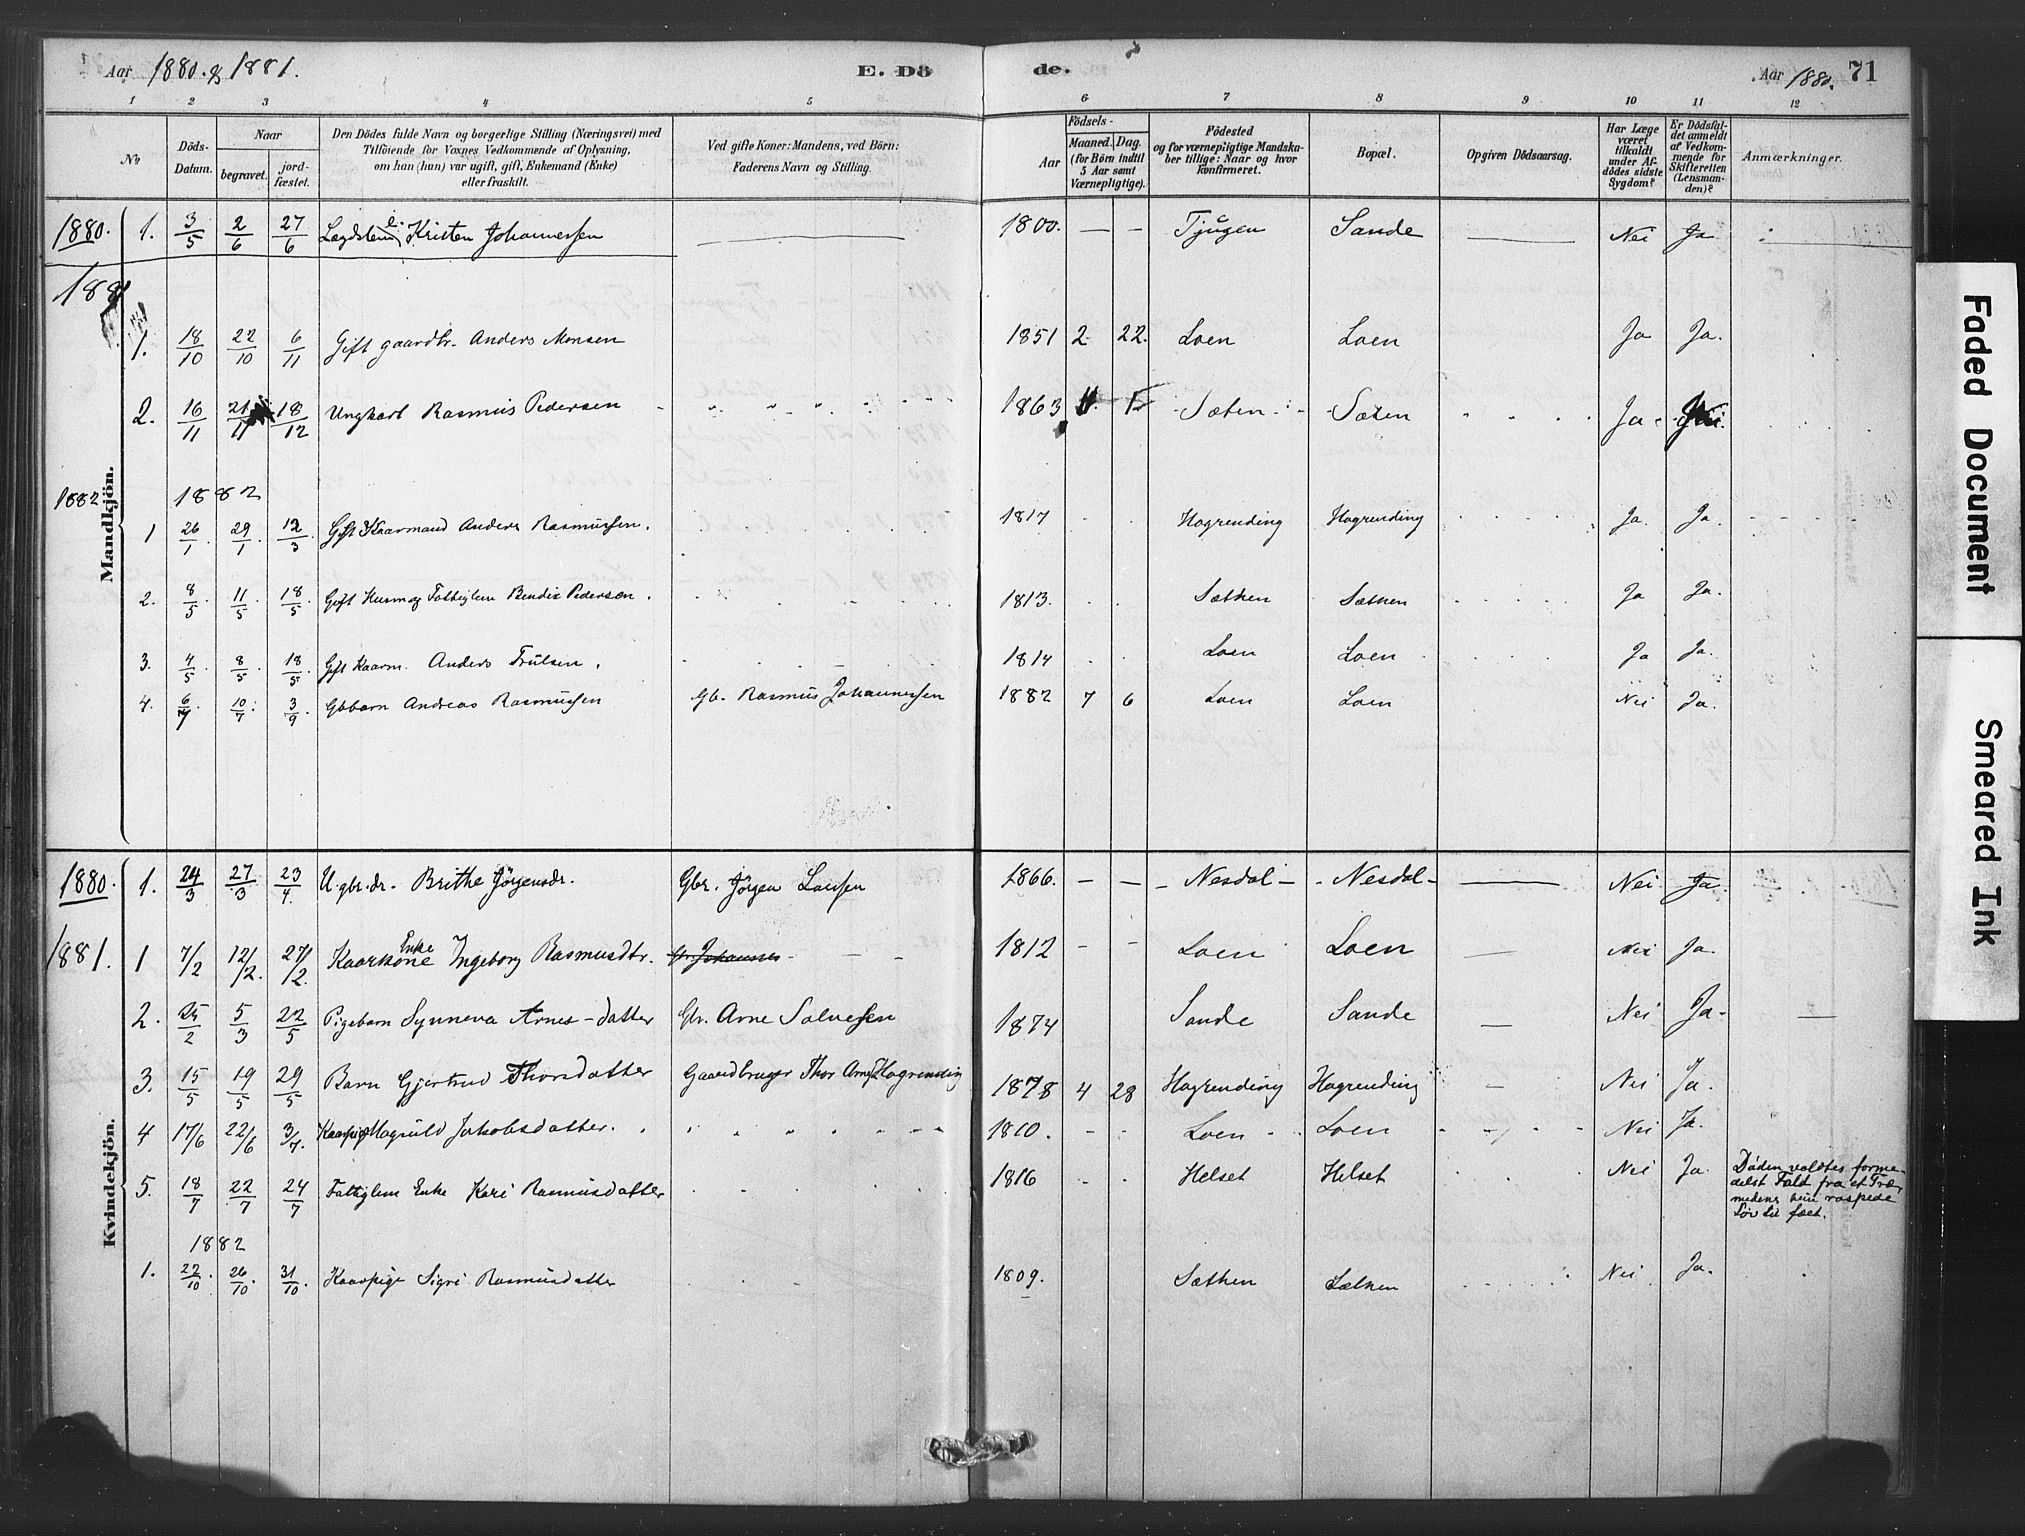 Aar 1880. & 1881. E. Dö de. Aar 1880. 71
1 2 3 4 5 6 7 8 9 10 11 12
No
Döds-Datum.
Naar
begravet. jordfæstet.
Den Dödes fulde Navn og borgerlige Stilling (Næringsvei) med
Tilföiende for Voxnes Vedkommende af Oplysning,
om han (hun) var ugift, gift, Enkemand (Enke)
eller fraskilt.
Ved gifte Koner: Mandens, ved Börn:
Faderens Navn og Stilling.
Födsels-
Aar Maaned. Dag.
(for Börn indtil
5 Aar samt
Værnepligtige).
Födested
og for værnepligtige Mandska-
ber tillige: Naar og hvor
konfirmeret.
Bopæl.
Opgiven Dödsaarsag.
Har Læge
været
tilkaldt
under Af-
dödes sidste
Sygdom?
Er Dödsfal-
det anmeldt
af Vedkom-
mende for
Skifteretten
(Lensman-
den)?
Anmærkninger.
Mandkjön.
1880. 1. 3/5 2/6 27/6 Lægdslem Kristen Johannessen — 1800. — — Tjugen Sande — Nei Ja
1881
1. 18/10 22/10 6/11 Gift gaardbr. Anders Monsen 1851 2 22. Loen Loen Ja Ja.
2. 16/11 21/11 18/12 Ungkarl Rasmus Pedersen 1863 Sæten Sæten Ja
1882 1882
1 26/1 29/1 12/3 Gift Kaarmand Anders Rasmussen. 1817 Hogrending Hogrending Ja. Ja.
2. 8/5 11/5 18/5 Gift Husm og Fattiglem Bendix Pedersen. 1813. Sæthen Sæthen Ja Ja.
3. 4/5 8/5 18/5 Gift Kaarm. Anders Trulsen. 1814 Loen Loen Ja Ja.
4. 6/7 10/7 3/9 Gbbarn Andreas Rasmussen Gb. Rasmus Johannessen 1882 7 6 Loen Loen Nei Ja.
Kvindekjön.
1880. 1. 24/3 27/3 23/4 U. gbr. dr. Brithe Jörgensdr. Gbr. Jörgen Larssen 1866. — — Nesdal Nesdal — Nei Ja
1881. 1 7/2 12/2. 27/2. Kaarkone Enke Ingeborg Rasmusdtr. Gbr. Johannes 1812 - - Loen Loen — Nei Ja.
2. 25/2 5/3 22/5 Pigebarn Synneva Arnes-datter Gbr. Arne Salvesen 1874 Sande Sande — Nei Ja —
3. 15/5 19/5 29/5 Barn Gjertrud Thorsdatter Gaardbruger Thor Arnes Hogrending 1878 4 28 Hogrending Hogrending — Nei Ja.
4 17/6 22/6 3/7. Kaarpige Magnild Jakobsdatter. 1810. Loen Loen Nei Ja.
5. 18/7 22/7 24/7 Fattiglem Enke Kari Rasmusdatter 1816 Helset Helset Nei Ja. Döden voldtes forme-
delst Fald fra et Træ,
medens hun raspede
Löv til fæet.
1882
1. 22/10 26/10 31/10 Kaarpige Sigri Rasmusdatter 1809. Sæthen Sæthen Nei Ja.
Faded Document
Smeared Ink